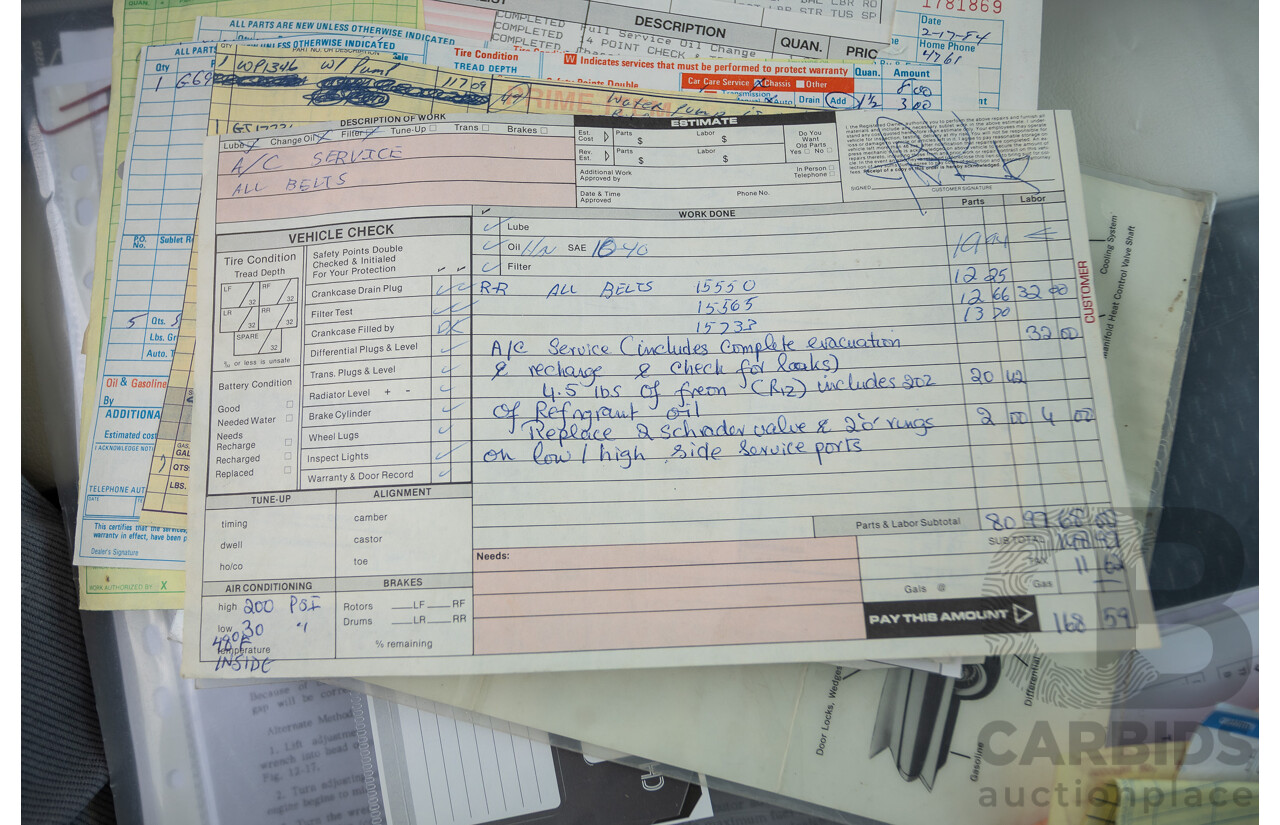 1781869
LIST
DESCRIPTION
QUAN.
PRIC
COMPLETED Full Service Oil Change
COMPLETED 14 POINT CHECK &
COMPLETED
Date
2-17-84
Home Phone
4761
ALL PARTS ARE NEW UNLESS OTHERWISE INDICATED
ALL PART
UNLESS OTHERWISE INDICATED
Qty
1 WP1346 W/Pump
11709
1 G69
Tire Condition
TREAD DEPTH
W Indicates services that must be performed to protect warranty
Points Double
Car Care Service Chassis Other
Transmission
Auto Drain Add 1½
Quan. Amount
8 00
3 00
PRIME
Water Pump
P.O. No. Sublet R
5 Qts. 5
Lbs. Gr
Auto. T
Oil & Gasoline
By
ADDITIONA
Estimated cost
I ACKNOWLEDGE NOTI
TELEPHONE AUT
DATE
This certifies that the services
warranty in effect, have been p
Dealer's Signature
WORK AUTHORIZED BY X
GAL
QTS
LBS.
DESCRIPTION OF WORK
Lube Change Oil Filter Tune-Up Trans Brakes
A/C SERVICE
ALL BELTS
ESTIMATE
Est. Cost Parts $ Labor $
Rev. Est. Parts $ Labor $
Do You Want Old Parts
Yes No
Additional Work Approved by
In Person
Telephone
Date & Time Approved
Phone No.
SIGNED
CUSTOMER SIGNATURE
WORK DONE
Parts
Labor
Lube
Oil SAE 10 40
Filter
R-R ALL BELTS 15550 12 25
15565 12 66 32 00
15733
32 00
A/C Service (includes complete evacuation
& recharge & check for leaks)
4.5 lbs of freon (R12) includes 2oz 20 42
of Refrigrant oil
Replace 2 schrader valve & 2 "o" rings 2 00 4 00
on low / high side service ports
CUSTOMER
VEHICLE CHECK
Tire Condition
Tread Depth
LF 32
RF 32
LR 32
RR 32
SPARE 32
or less is unsafe
Battery Condition
Good
Needed Water
Needs Recharge
Recharged
Replaced
Safety Points Double
Checked & Initialed
For Your Protection
Crankcase Drain Plug
Filter Test
Crankcase Filled by
Differential Plugs & Level
Trans. Plugs & Level
Radiator Level + -
Brake Cylinder
Wheel Lugs
Inspect Lights
Warranty & Door Record
TUNE-UP
timing
dwell
ho/co
ALIGNMENT
camber
castor
toe
AIR CONDITIONING
high 200 PSI
low 30 "
48°F
temperature
INSIDE
BRAKES
Rotors LF RF
Drums LR RR
% remaining
Needs:
Parts & Labor Subtotal 80 97 68 00
SUB TOTAL
TAX 11 62
Gals @ Gas
PAY THIS AMOUNT 168 59
Cooling System
Manifold Heat Control Valve Shaft
Door Locks, Wedges
Gasoline
Differential
Because of
gap will be corre
Alternate Method
1. Lift adjustm
wrench into head o
Fig. 12-17.
2. Turn adjusting
engine begins to mi
3. Turn the wre
CARBIDS
auctionplace